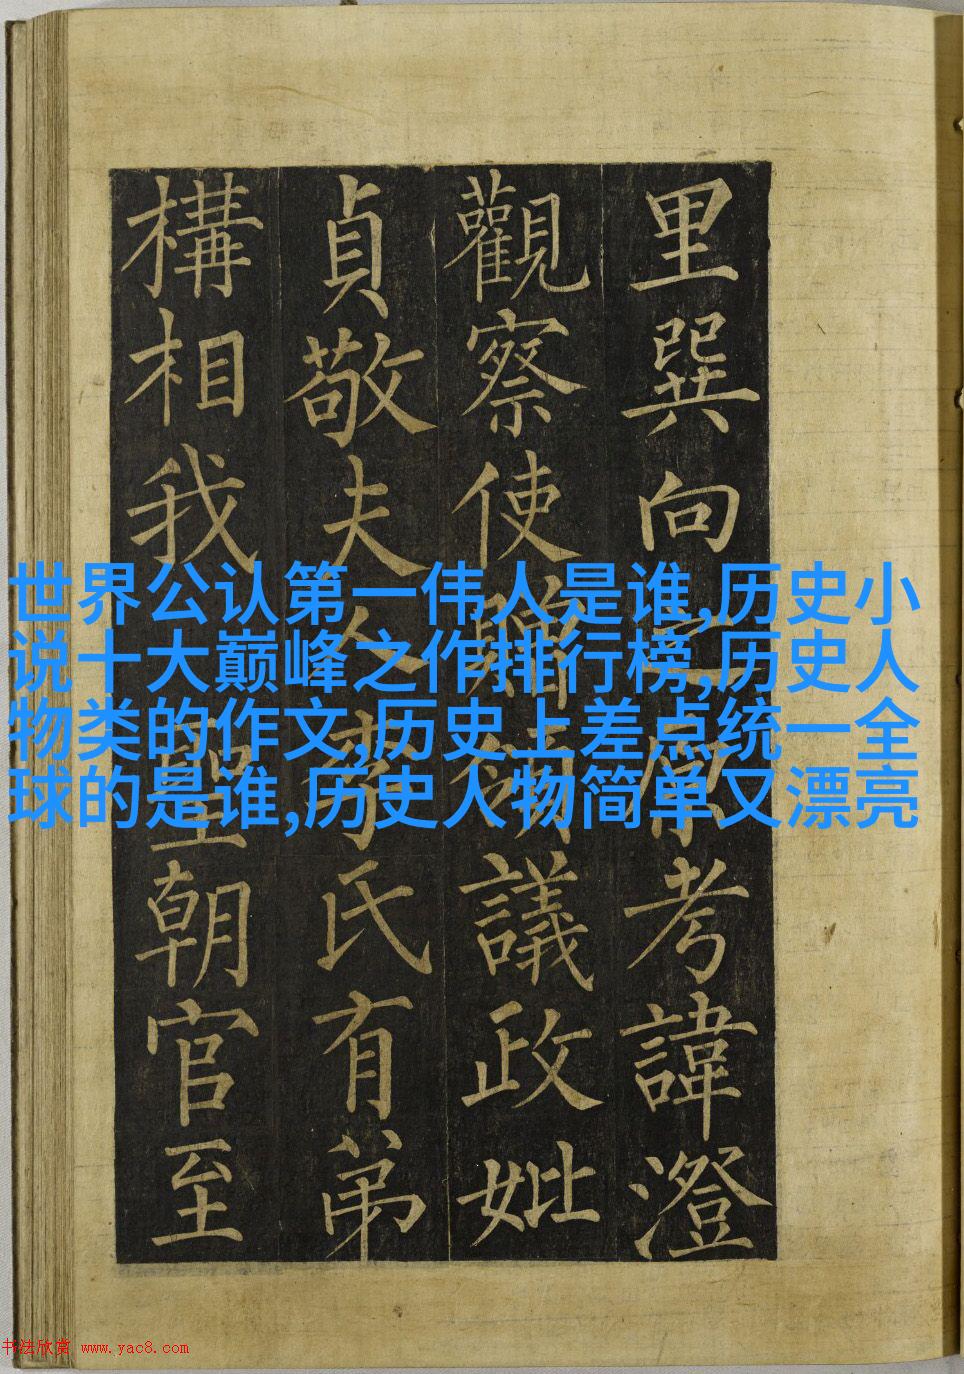 里巽向考諱澄
觀察使贈議政妣
貞敬夫人李氏有弟
構相我聖朝官至
世界公认第一伟人是谁,历史小
说十大巅峰之作排行榜,历史人
物类的作文,历史上差点统一全
球的是谁,历史人物简单又漂亮
书法欣赏 www.yac8.com